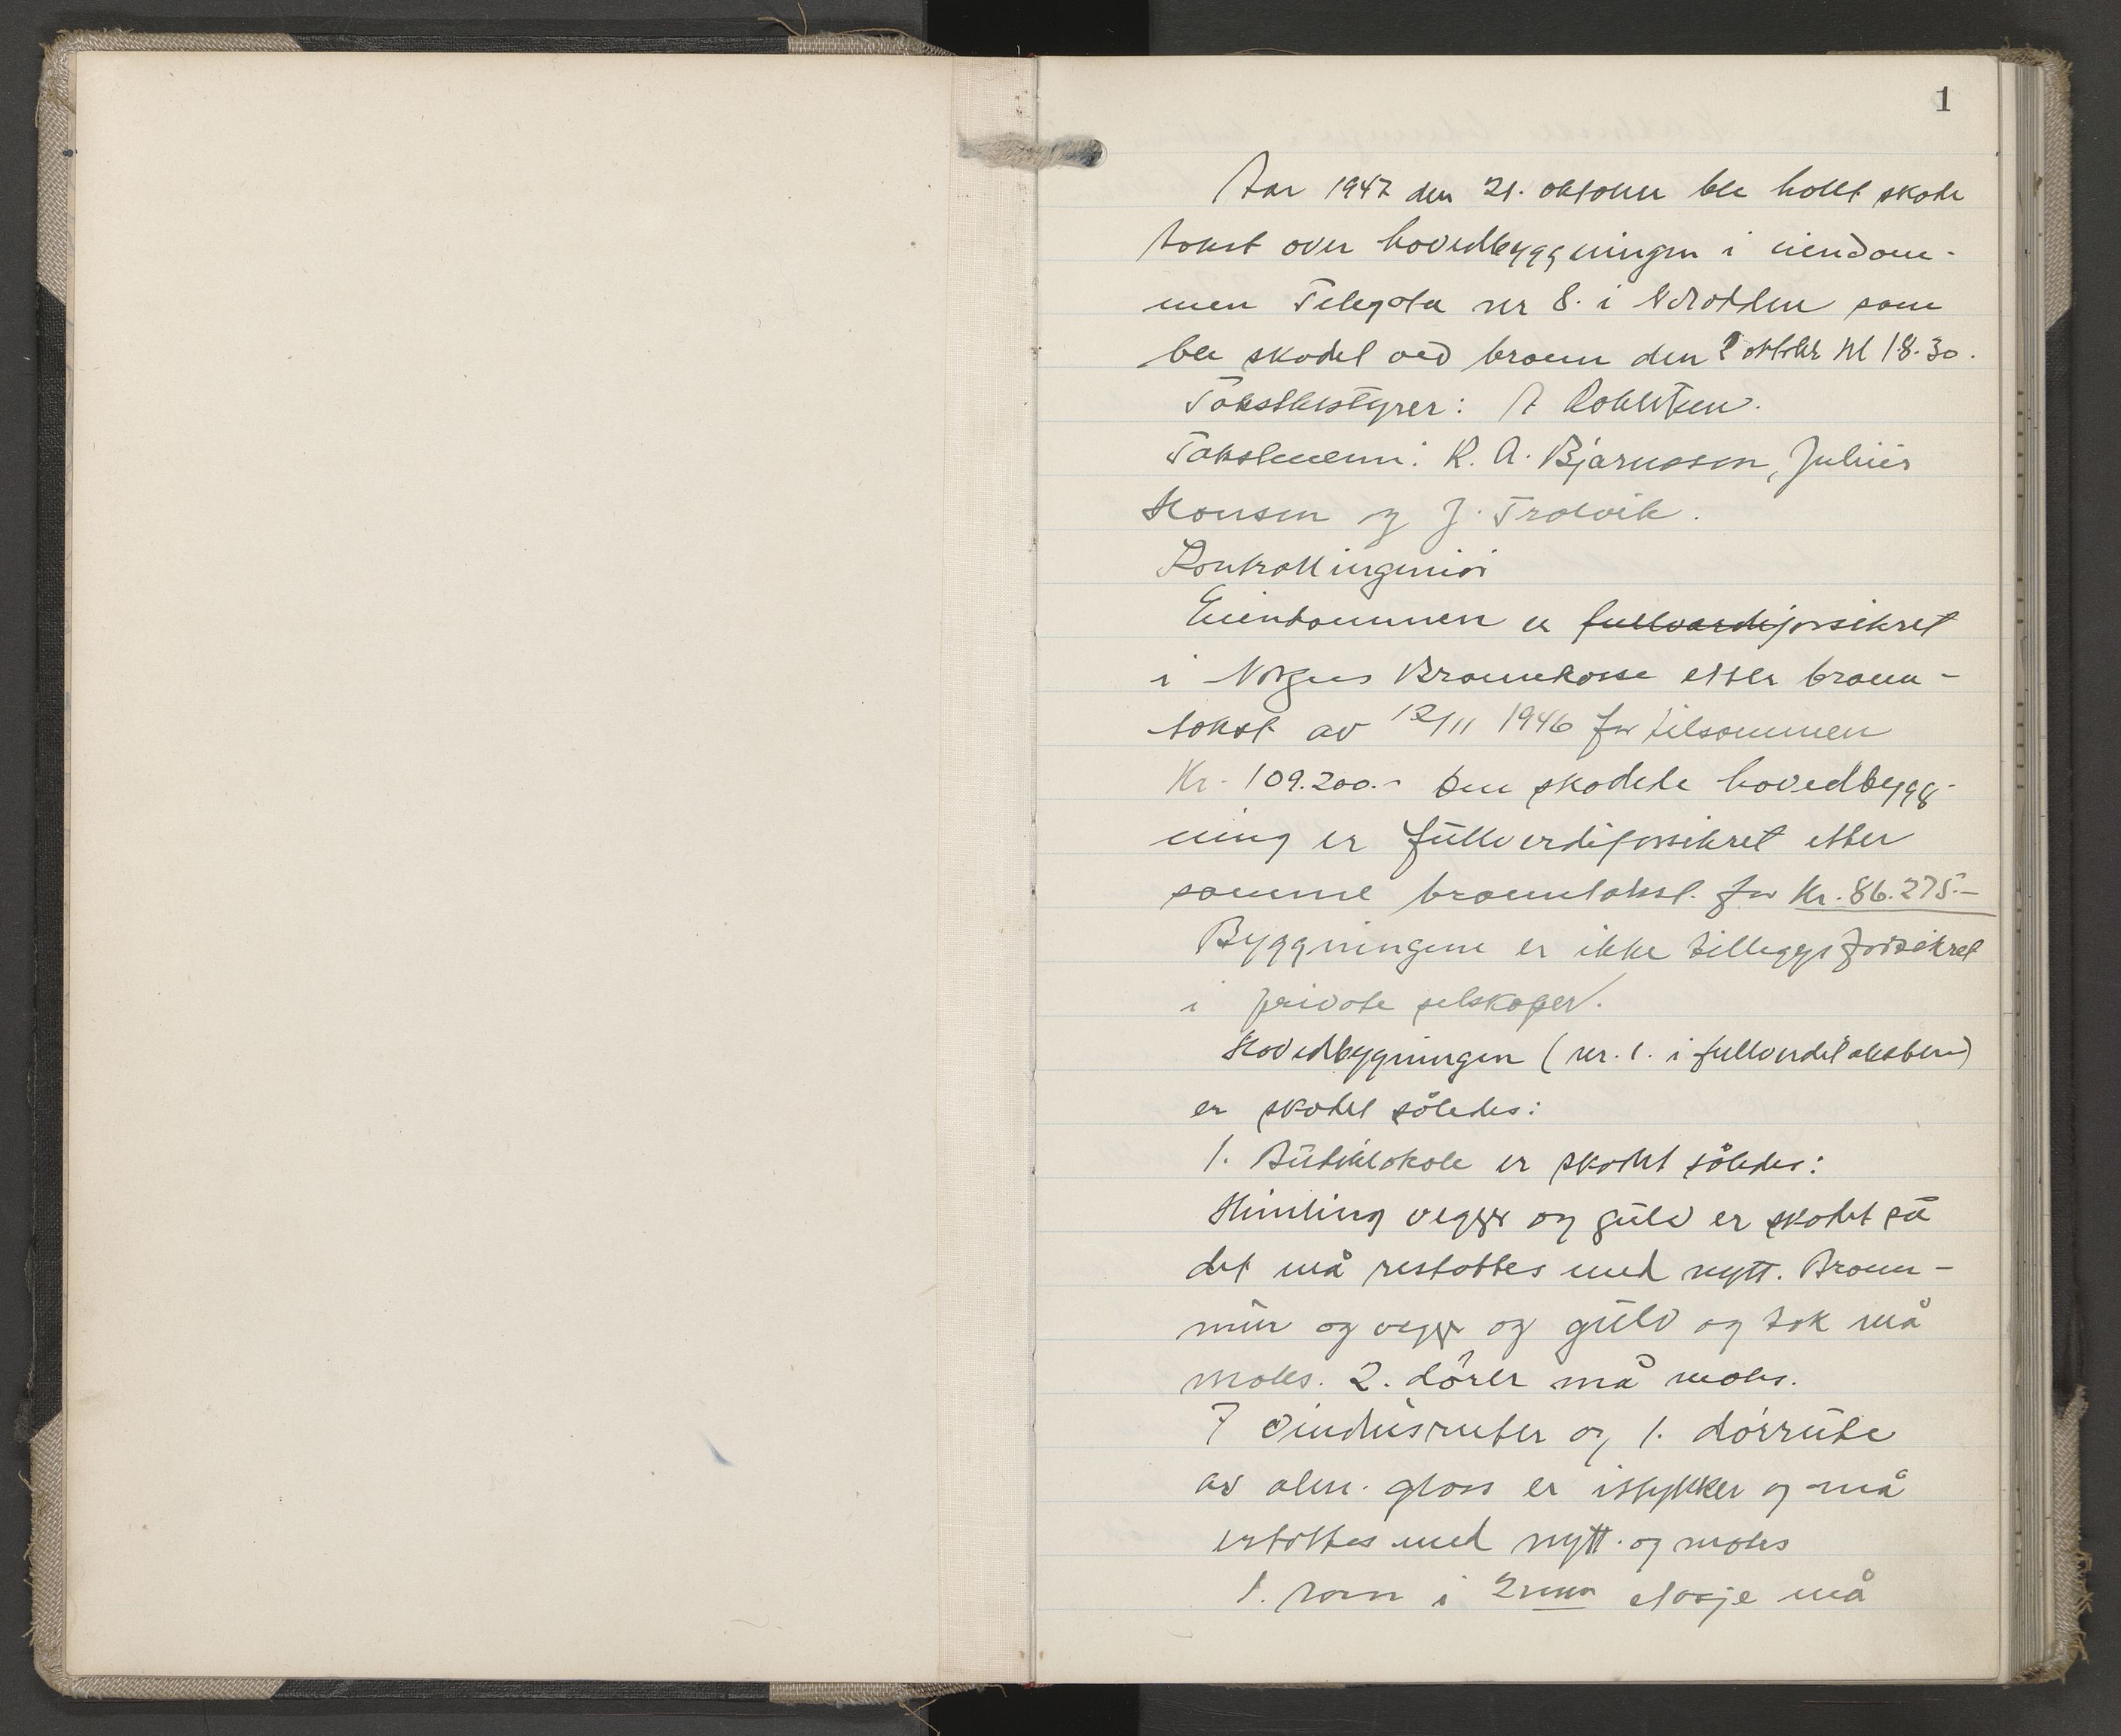 1
Aar 1947 den 21. oktober ble holdt skade
takst over hovedbyggningen i eiendom-
men Telegata nr 8. i Notodden som
ble skadet ved brann den 2 oktober kl 18.30.
Takstbestyrer: A
Takstmenn: K. A. Bjarnason, Julius
Hansen og J. Tralvik.
Kontrollingeniør
Eiendommen er fullverdiforsikret
i Norges Brannkasse etter brann-
takst av 12/11 1946 for tilsammen
Kr. 109.200.- Den skadede hovedbygg-
ning er fullverdiforsikret etter
samme branntakst. for Kr. 86.275.-
Byggningene er ikke tilleggsforsikret
i private selskaper.
Hovedbygningen (nr. 1. i fullverditaksten)
er skadet således:
1. Butiklokale er skadet således:
Himling vegger og gulv er skadet så
det må restattes med nytt. Brann-
mur og vegger og gulv og tak må
males. 2. dører må males.
7 vindusruter og 1. dørrute
av alm. glass er istykker og må
erstattes med nytt. og males
1. rom i 2nen etasje må